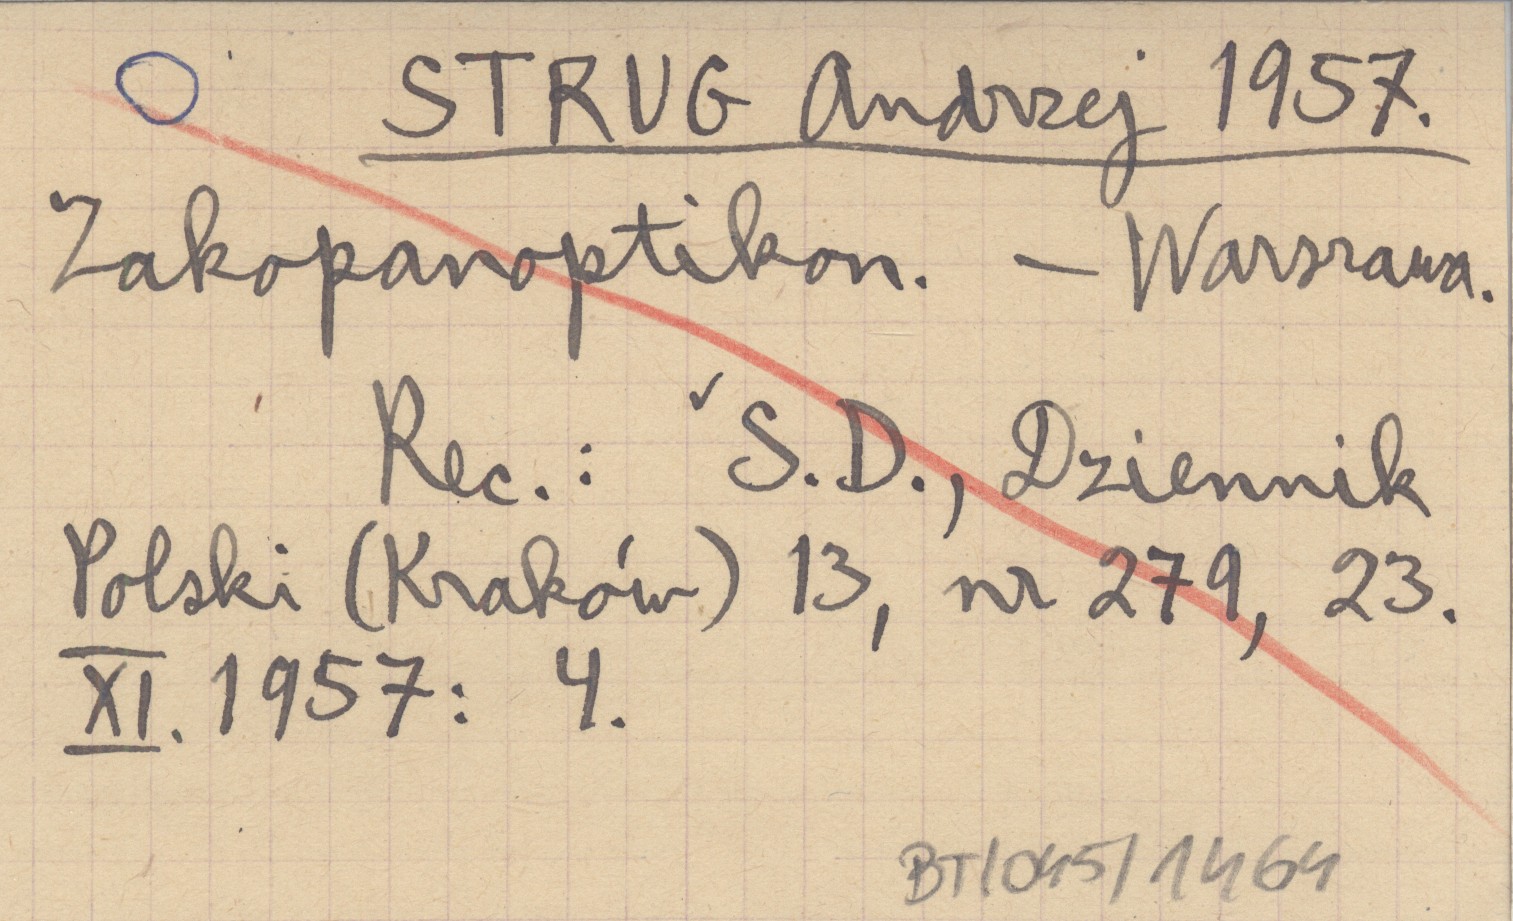 STRUG Andrzej 1957.
Zakopanoptikon. – Warszawa.
Rec.: ✓S.D., Dziennik
Polski (Kraków) 13, nr 279, 23.
XI. 1957: 4.
BT/045/1464